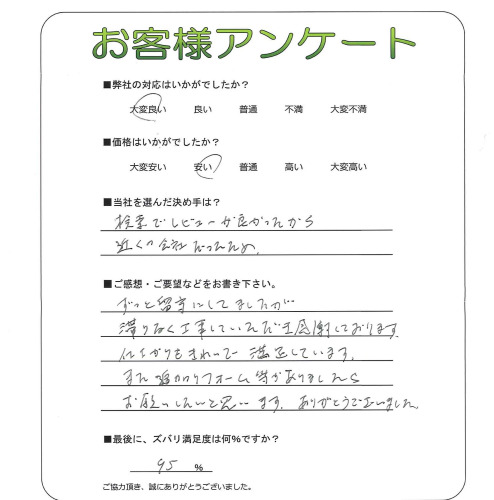 お客様アンケート
■弊社の対応はいかがでしたか？
大変良い 良い 普通 不満 大変不満
■価格はいかがでしたか？
大変安い 安い 普通 高い 大変高い
■当社を選んだ決め手は？
検索でレビューが良かったから
近くの会社だったため。
■ご感想・ご要望などをお書き下さい。
ずっと留守にしてましたが
滞りなく工事していただき感謝しております
仕上がりもきれいで 満足しています。
また追加リフォーム等がありましたら
お願いしたいと思います。ありがとうございました。
■最後に、ズバリ満足度は何%ですか？
95 %
ご協力頂き、誠にありがとうございました。